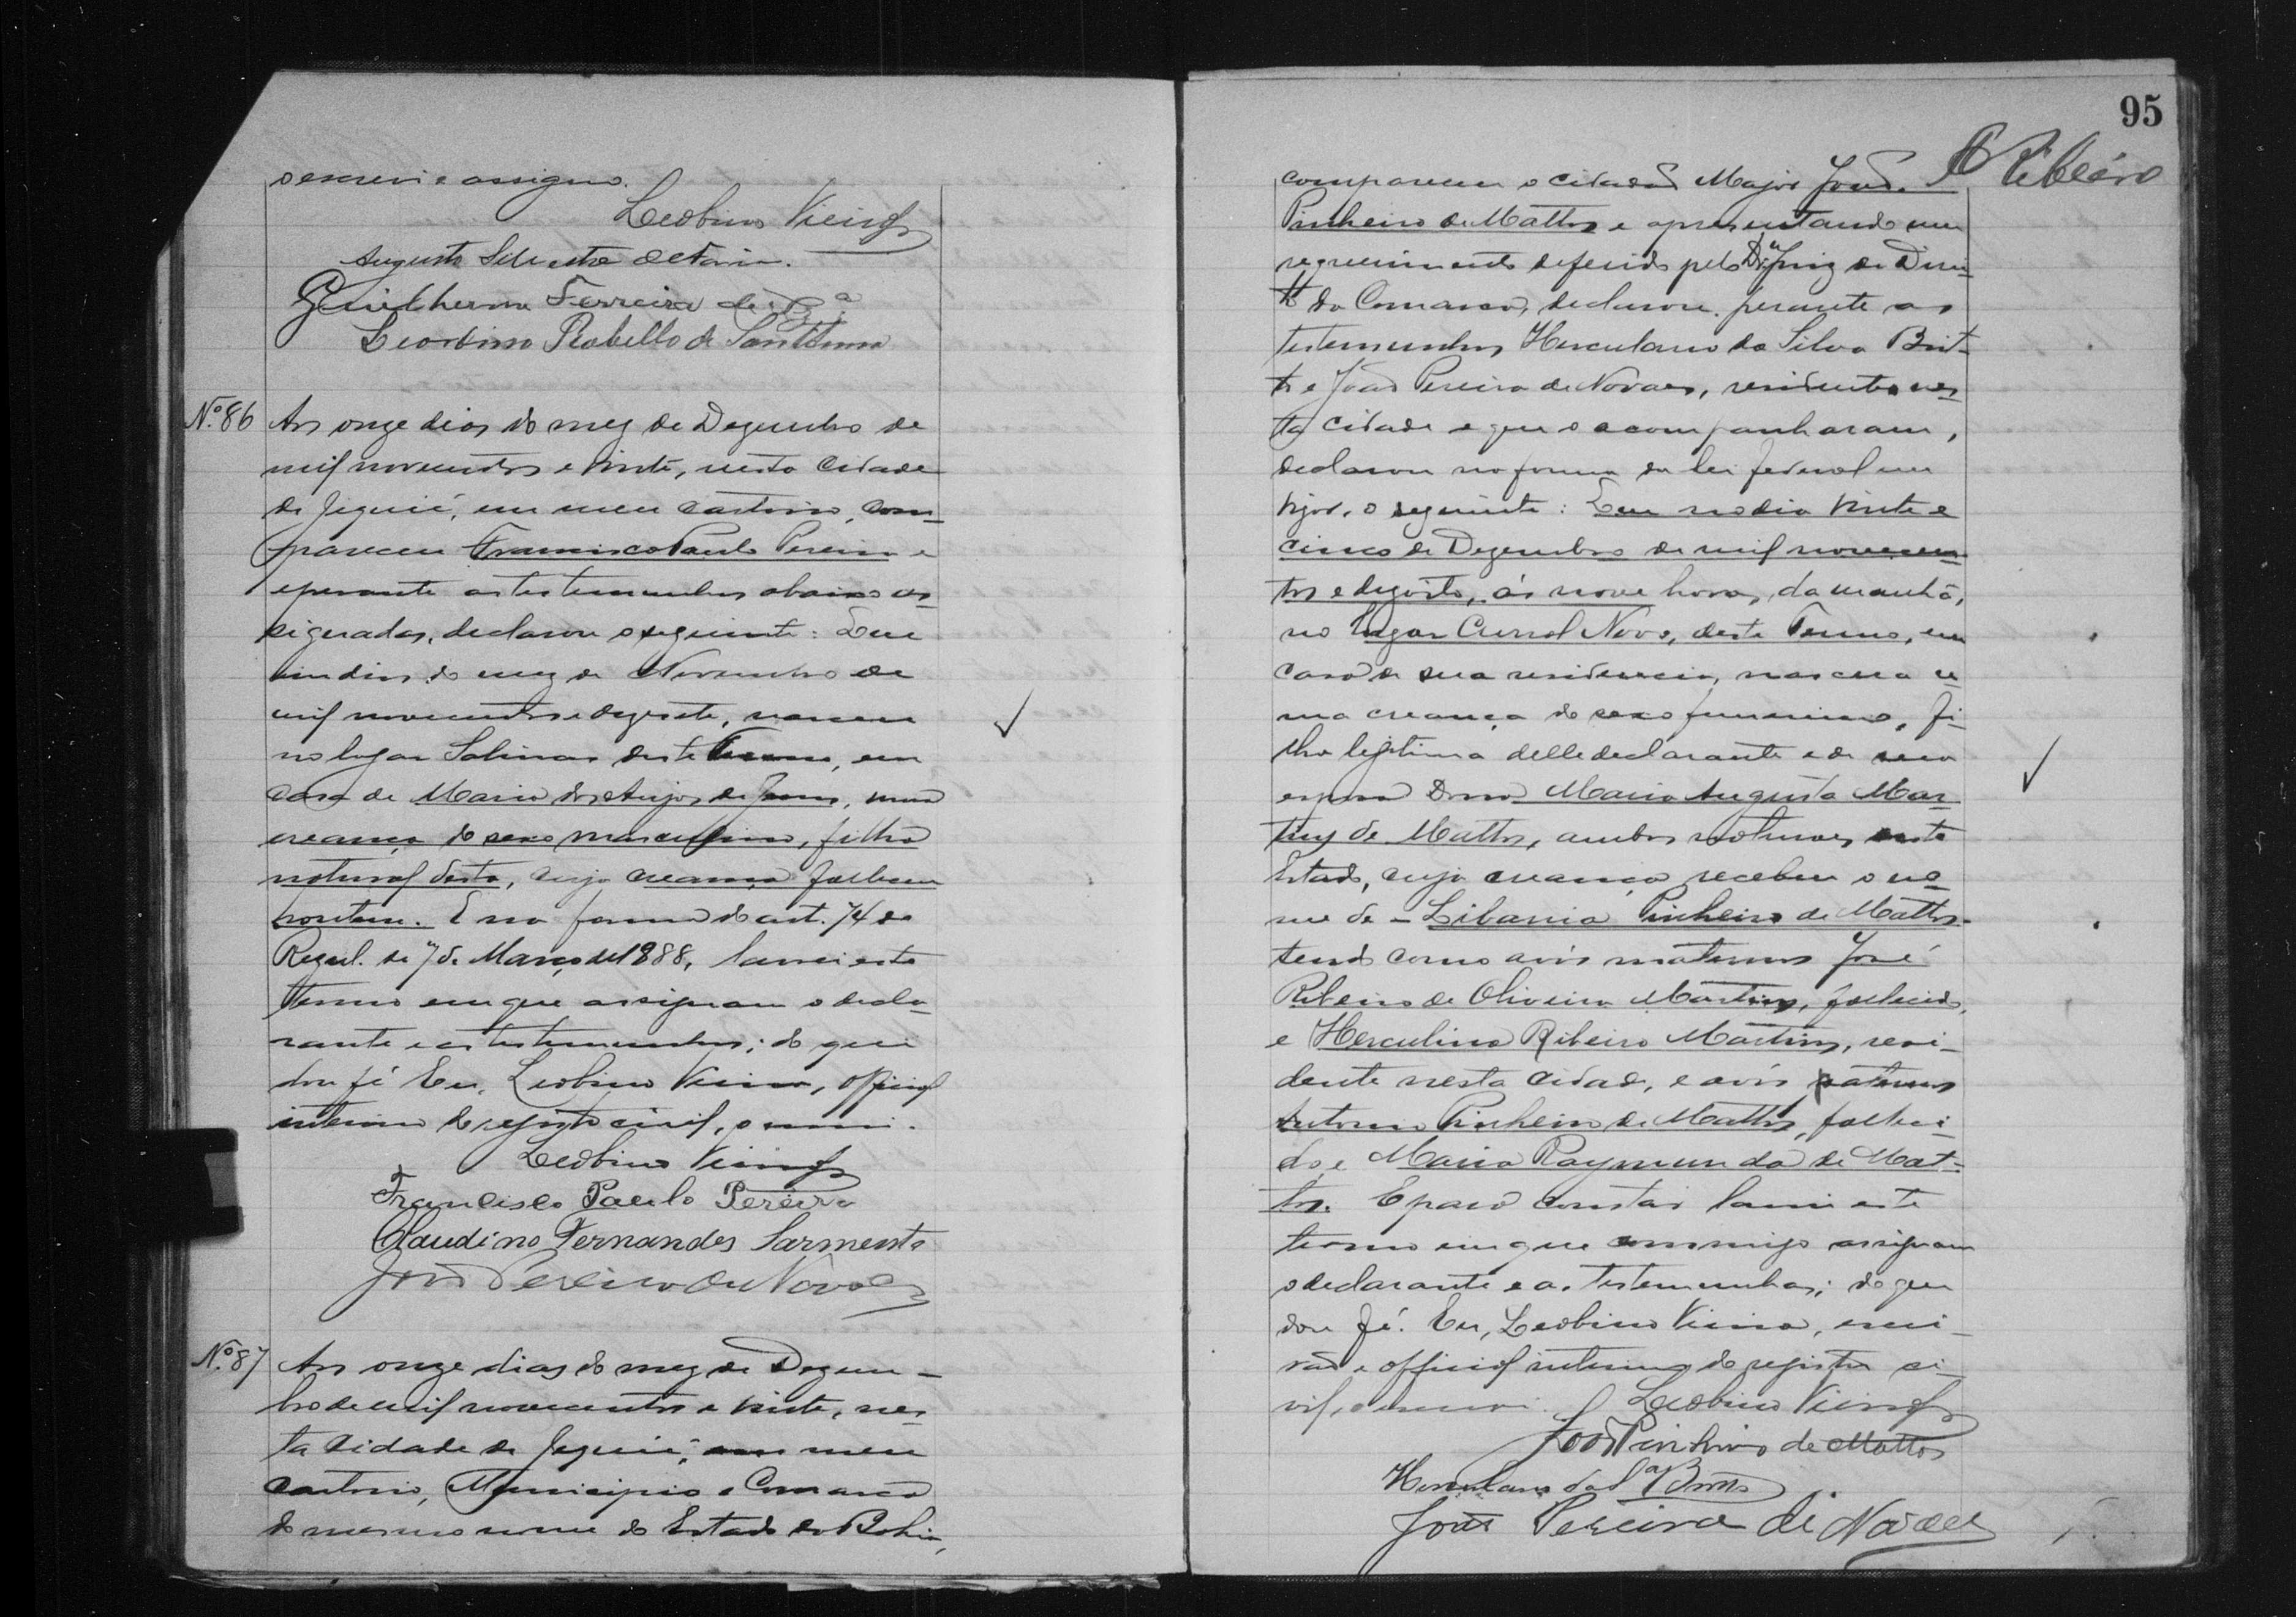 o escrevi e assigno.
Leobino Vieira
Augusto Silvestre de Faria.
Guilherme Ferreira de
Leordino Rabello de Sant'Anna
Nº 86 Aos onze dias do mez de Dezembro de
mil novecentos e vinte, nesta Cidade
de Jequié, em meu cartorio, com-
pareceu Francisco Paulo Pereira e
e perante as testemunhas abaixo as-
signadas, declarou o seguinte: Que
em dias do mez de Novembro de
mil novecentos e dezesete, nasceu
no lugar Salinas deste Termo, em
casa de Maria dos Anjos de Jesus, uma
creança do sexo masculino, filho
natural desta, cuja creança falleceu
hontem. E na forma do art. 74 do
Regul. de 7 de Março de 1888, lavrei este
termo em que assignam o decla-
rante e as testemunhas; do que
dou fé Eu, Leobino Vieira, official
interino do registo civil, o escrevi.
Leobino Vieira
Francisco Paulo Pereira
Claudino Fernandes Sarmento
João Pereira de Novaes
Nº 87 Aos onze dias do mez de Dezem-
bro de mil novecentos e vinte, nes-
ta Cidade de Jequié, em meu
cartorio, Municipio e Comarca
do mesmo nome do Estado da Bahia,
95
Ribeiro
compareceu o cidadão Major João
Pinheiro de Mattos e apresentando um
requerimento deferido pelo Dr. Juiz de Direi-
to da Comarca, declarou perante as
testemunhas Herculano da Silva Brit-
to e João Pereira de Novaes, residentes nes-
ta cidade e que o acompanharam,
declarou na forma da lei federal em
vigor, o seguinte: Que no dia vinte e
cinco de Dezembro de mil novecen-
tos e dezoito, ás nove horas, da manhã,
no lugar Curral Novo, deste Termo, em
casa de sua residencia, nascera u-
ma creança do sexo femenino, fi-
lha legitima delle declarante e de sua
esposa Dona Maria Augusta Mar-
tins de Mattos, ambos naturaes deste
Estado, cuja creança recebeu o no-
me de - Libania Pinheiro de Mattos -
tendo como avós maternos José
Ribeiro de Oliveira Martins, fallecido,
e Herculina Ribeiro Martins, resi-
dente nesta cidade, e avós paternos
Antonio Pinheiro de Mattos, falleci-
do, e Maria Raymunda de Mat-
tos. E para constar lavrei este
termo em que commigo assignam
o declarante e as testemunhas; do que
dou fé. Eu, Leobino Vieira, escri-
vão e official interino do registro ci-
vil, o escrevi. Leobino Vieira
João Pinheiro de Mattos
Herculano da Sª Britto
João Pereira de Novaes